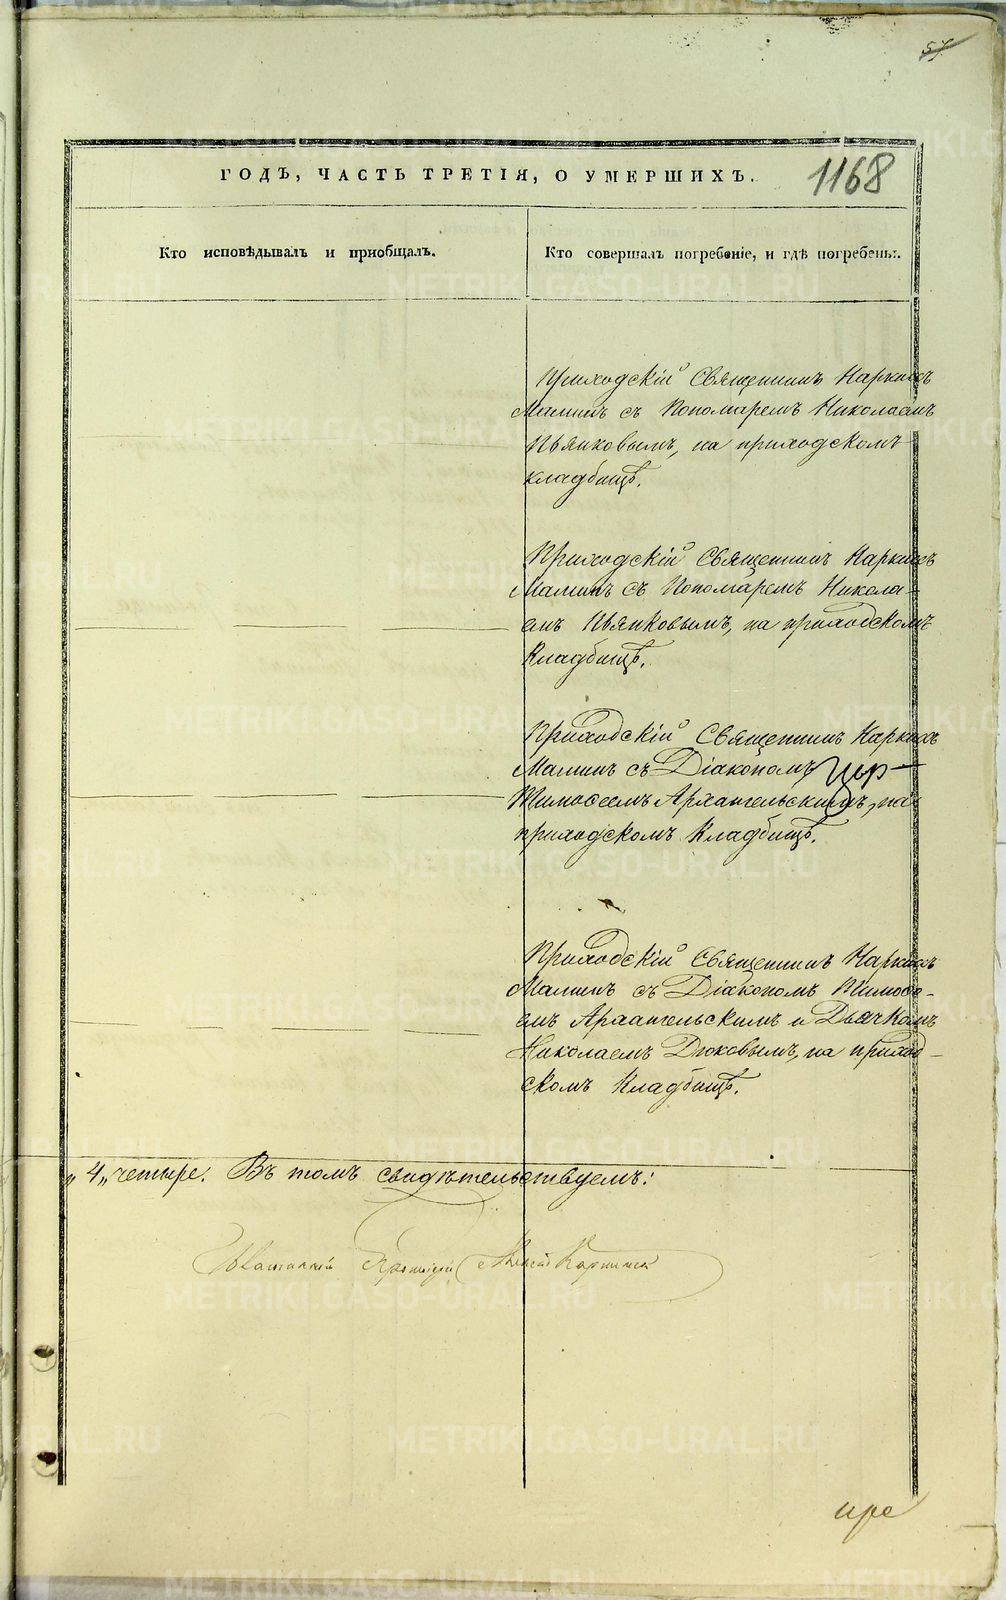 57
ГОДЪ, ЧАСТЬ ТРЕТІЯ, О УМЕРШИХЪ.
1168
Кто исповѣдывалъ и пріобщалъ.
Кто совершалъ погребеніе, и гдѣ погребены.
Приходскій Священникъ Наркисъ
Маминъ съ Пономаремъ Николаемъ
Пьянковымъ, на приходскомъ
кладбищѣ.
Приходскій Священникъ Наркисъ
Маминъ съ Пономаремъ Никола-
емъ Пьянковымъ, на приходскомъ
Кладбищѣ.
Приходскій Священникъ Наркисъ
Маминъ съ Діакономъ
Тимоѳеемъ Архангельскимъ, на
приходскомъ Кладбищѣ.
Приходскій Священникъ Наркисъ
Маминъ съ Діакономъ Тимоѳе-
емъ Архангельскимъ и Дьячкомъ
Николаемъ Дюковымъ, на приход-
скомъ Кладбищѣ.
„4„ четыре. Въ томъ свидѣтельствуемъ:
METRIKI.GASO-URAL.RU